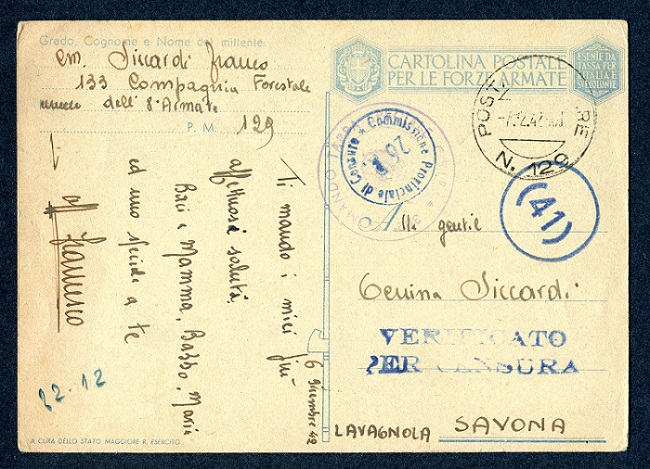 Grado, Cognome e Nome del mittente
Siccardi Franco
133 Compagnia Forestale
dell'8ª Armata
P. M. 129
CARTOLINA POSTALE
PER LE FORZE ARMATE
ESENTE DA
TASSA PER
ITALIA E
COLONIE
POSTA
RE
N. 129
COMANDO TAPPA
Commissione Provinciale di Censura
(41)
Alla gentil
Siccardi
VERIFICATO
PER CENSURA
LAVAGNOLA SAVONA
6 dicembre 42
Ti mando i miei più
affettuosi saluti.
Baci a Mamma, Babbo, Maria
ed uno a te
aff Francesco
12-12
A CURA DELLO STATO MAGGIORE R. ESERCITO